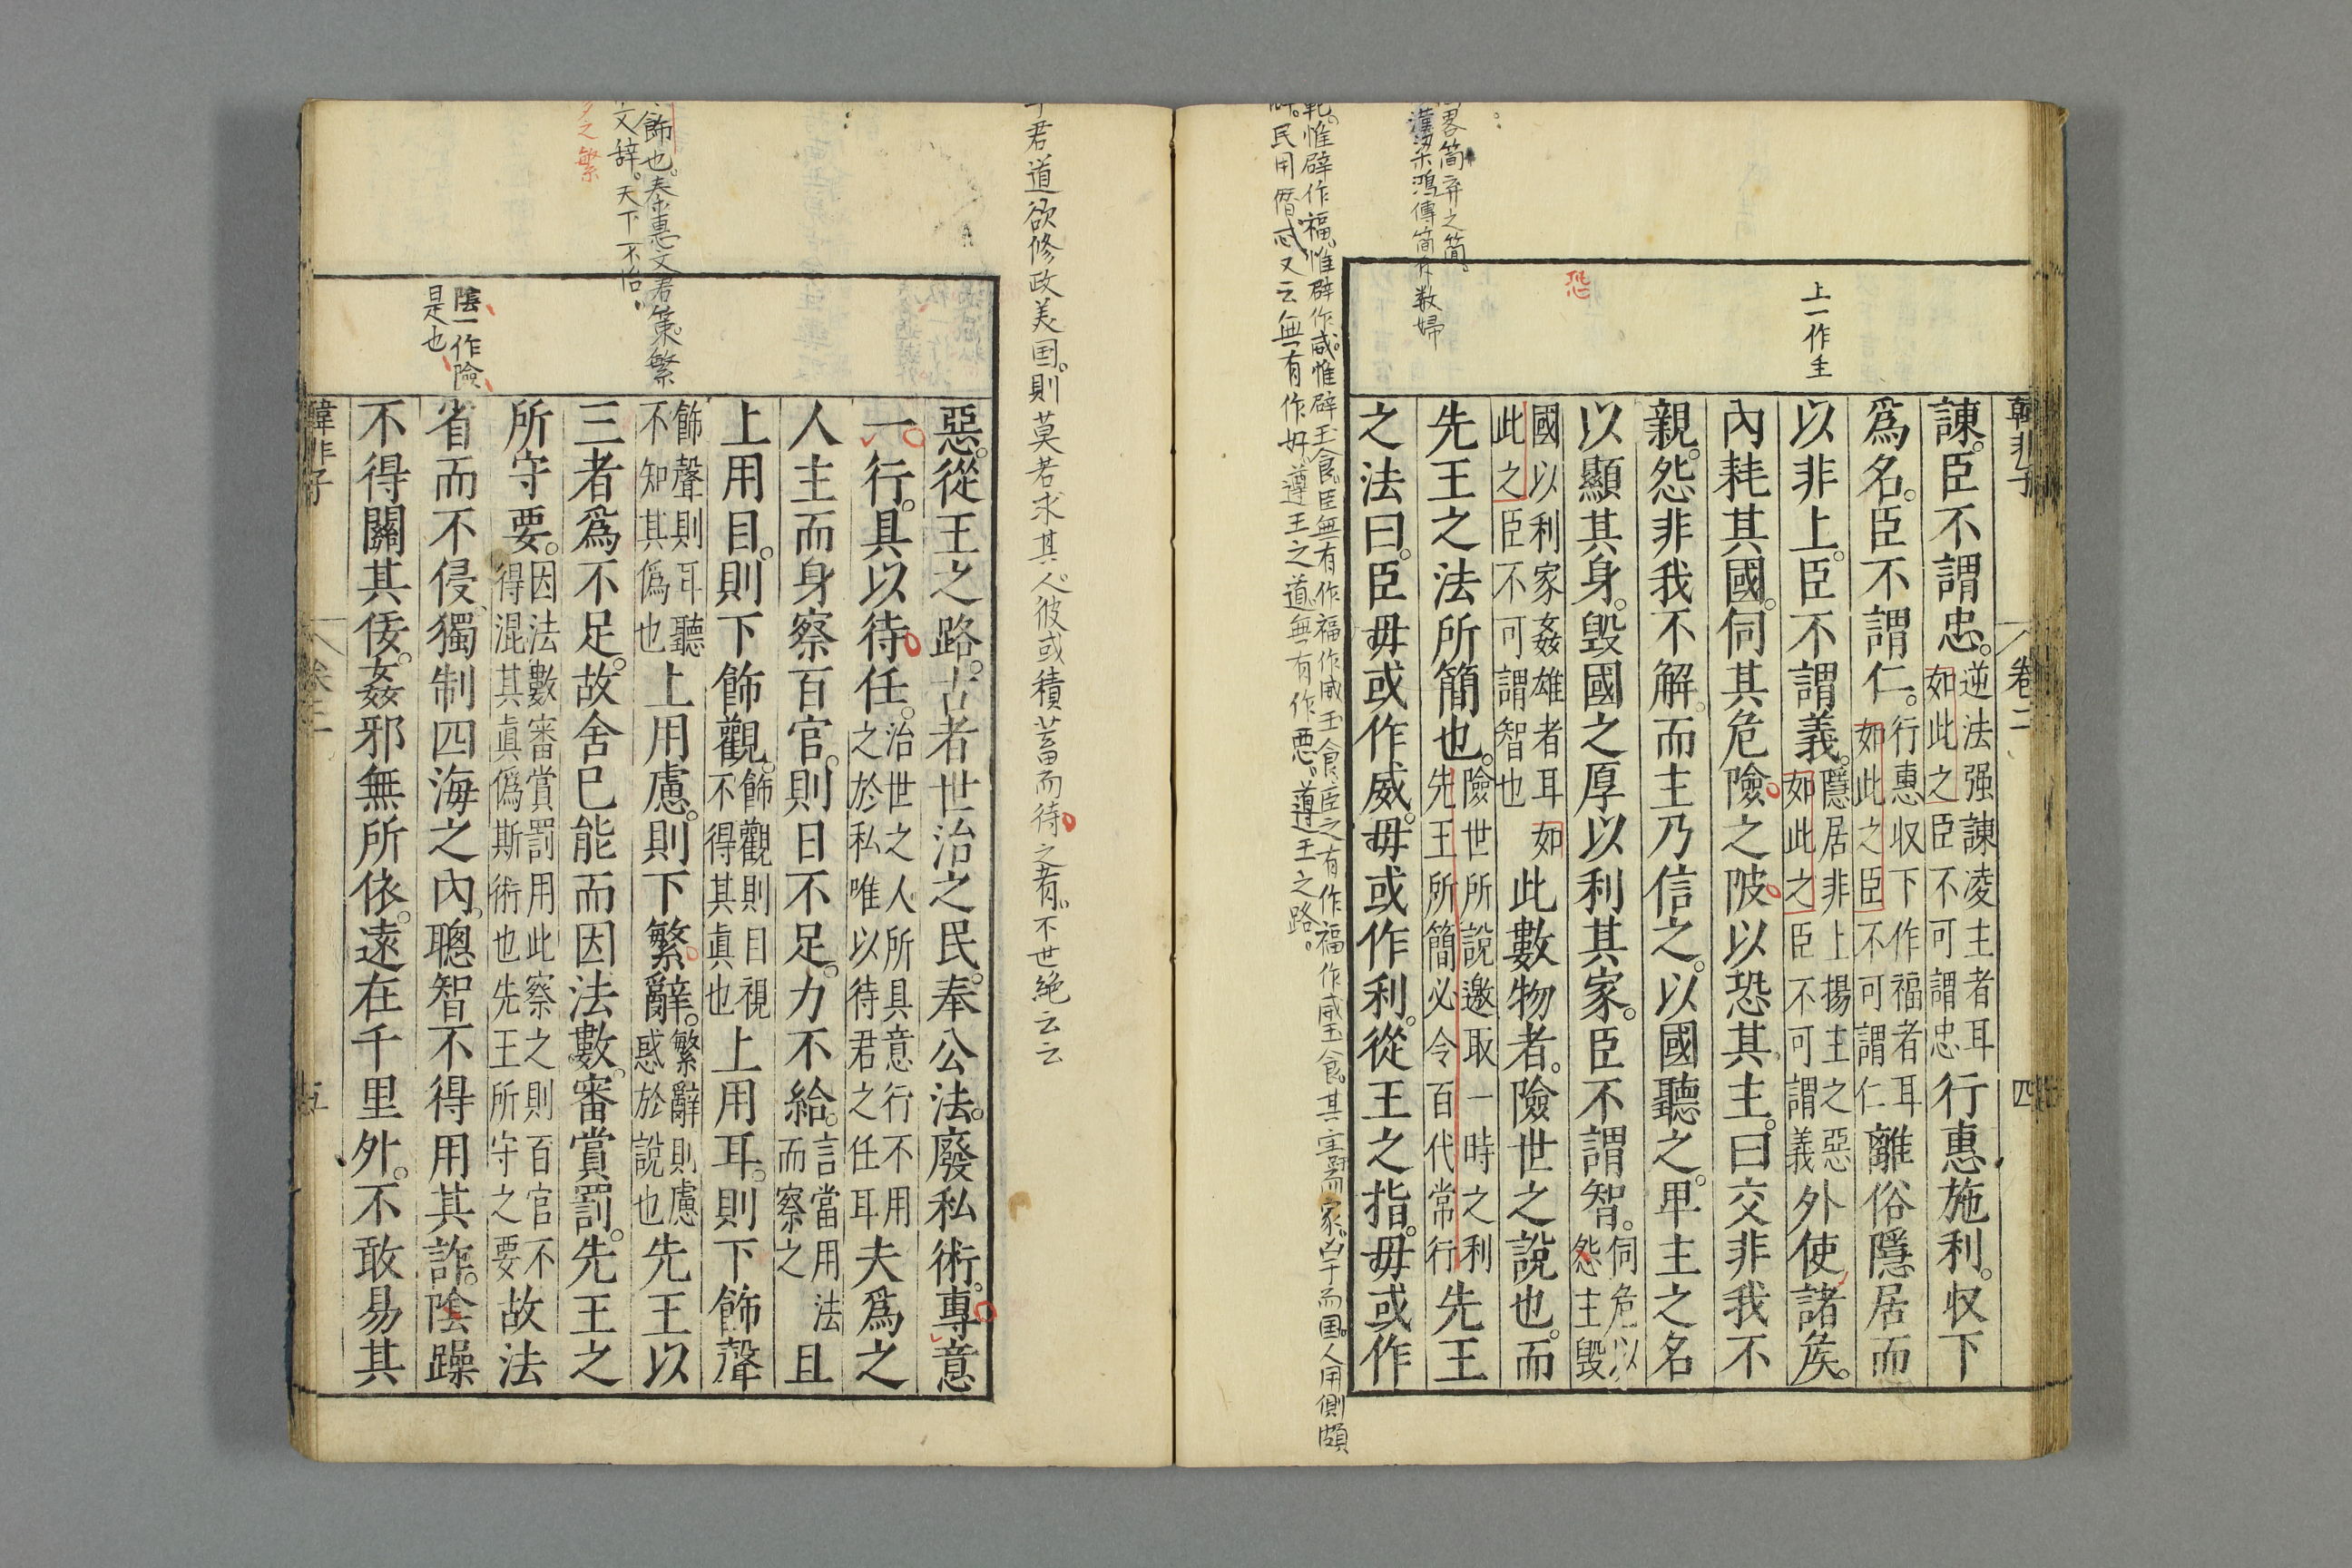 韓非子
卷二
四
上一作主
恐
畧簡弃之簡
漢梁鴻傳簡斥数婦
諌。臣不謂忠。逆法强諌凌主者耳
如此之臣不可謂忠行惠施利。収下
爲名。臣不謂仁。行惠収下作福者耳
如此之臣不可謂仁離俗隱居而
以非上。臣不謂義。隱居非上揚主之惡
如此之臣不可謂義外使諸矦。
內耗其國。伺其危險之陂以恐其主。曰交非我不
親。怨非我不解。而主乃信之。以國聽之。卑主之名
以顯其身。毀國之厚以利其家。臣不謂智。伺危以
怨主毀
國以利家姦雄者耳如
此之臣不可謂智也此數物者。險世之說也。而
先王之法所簡也。險世所說邀取一時之利
先王所簡必令百代常行先王
之法曰。臣毋或作威。毋或作利。從王之指。毋或作
惟辟作福。惟辟作威。惟辟玉食。臣無有作福作威玉食。臣之有作福作威玉食。其害于而家。凶于而国。人用側頗
民用僭忒。又云無有作好。遵王之道。無有作惡。遵王之路。
君道欲修政美国。則莫若求其人。彼或積蓄而待之者。不世絶云云
飾也。秦惠文君策。繁
文辞。天下不治。
之繁
陰一作險
是也
惡。從王之路。古者世治之民。奉公法。廢私術。專意
一行。具以待任。治世之人所具意行不用
之於私唯以待君之任耳夫爲之
人主而身察百官。則日不足。力不給。言當用法
而察之且
上用目。則下飾觀。飾觀則日視
不得其眞也上用耳。則下飾聲
飾聲則耳聽
不知其僞也上用慮。則下繁辭。繁辭則慮
惑於說也先王以
三者爲不足。故舍已能而因法數。審賞罰。先王之
所守要。因法數審賞罰用此察之則百官不
得混其眞僞斯術也先王所守之要故法
省而不侵、獨制四海之內。聰智不得用其詐。陰躁
不得關其佞。姦邪無所依。遠在千里外。不敢易其
韓非子
卷二
五